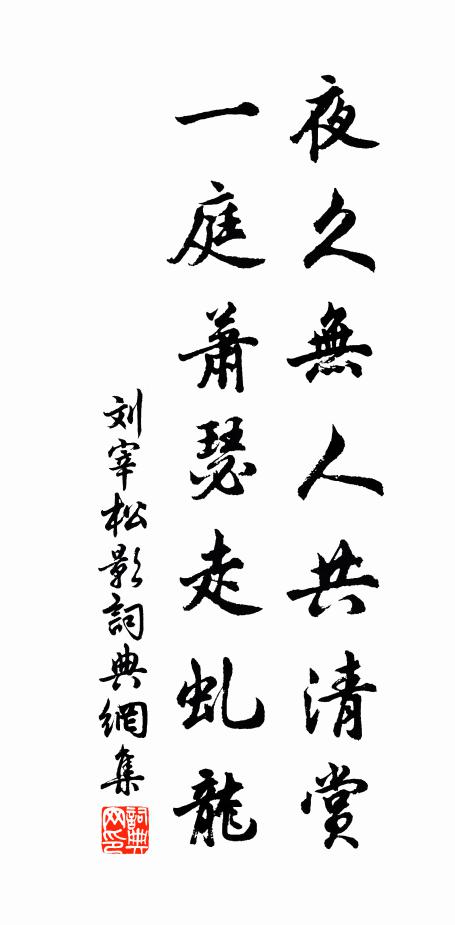 夜久無人共清賞
一庭蕭瑟走虬龍
刘宰松影詞典網集
詞典网印